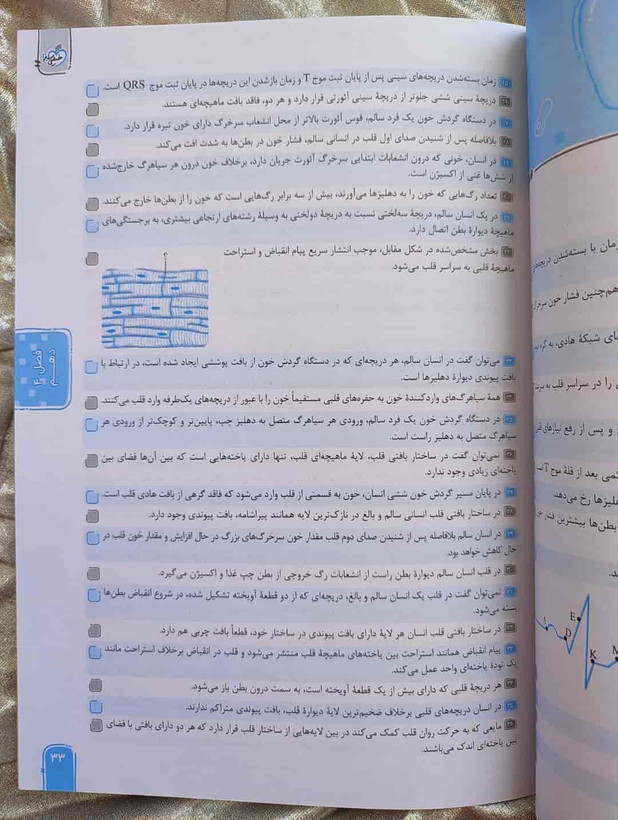 زمان بسته‌شدن دریچه‌های سینی پس از پایان ثبت موج T و زمان بازشدن این دریچه‌ها در پایان ثبت موج QRS است.
دریچهٔ سینی ششی جلوتر از دریچهٔ سینی آئورتی قرار دارد و هر دو، فاقد بافت ماهیچه‌ای هستند.
در دستگاه گردش خون یک فرد سالم، قوس آئورت بالاتر از محل انشعاب سرخرگ دارای خون تیره قرار دارد.
بلافاصله پس از شنیدن صدای اول قلب در انسانی سالم، فشار خون در بطن‌ها به شدت افت می‌کند.
در انسان، خونی که درون انشعابات ابتدایی سرخرگ آئورت جریان دارد، برخلاف خون درون هر سیاهرگ خارج‌شده
از شش‌ها غنی از اکسیژن است.
تعداد رگ‌هایی که خون را به دهلیزها می‌آورند، بیش از سه برابر رگ‌هایی است که خون را از بطن‌ها خارج می‌کنند.
در یک انسان سالم، دریچهٔ سه‌لختی نسبت به دریچهٔ دولختی به وسیلهٔ رشته‌های ارتجاعی بیشتری، به برجستگی‌های
ماهیچهٔ دیوارهٔ بطن اتصال دارد.
بخش مشخص‌شده در شکل مقابل، موجب انتشار سریع پیام انقباض و استراحت
ماهیچهٔ قلبی به سراسر قلب می‌شود.
؟
می‌توان گفت در انسان سالم، هر دریچه‌ای که در دستگاه گردش خون از بافت پوششی ایجاد شده است، در ارتباط با
بافت پیوندی دیوارهٔ دهلیزها است.
همهٔ سیاهرگ‌های واردکنندهٔ خون به حفره‌های قلبی مستقیماً خون را با عبور از دریچه‌های یک‌طرفه وارد قلب می‌کنند.
در دستگاه گردش خون یک فرد سالم، ورودی هر سیاهرگ متصل به دهلیز چپ، پایین‌تر و کوچک‌تر از ورودی هر
سیاهرگ متصل به دهلیز راست است.
نمی‌توان گفت در ساختار بافتی قلب، لایهٔ ماهیچه‌ای قلب، تنها دارای یاخته‌هایی است که بین آن‌ها فضای بین
یاخته‌ای زیادی وجود ندارد.
در پایان مسیر گردش خون ششی انسان، خون به قسمتی از قلب وارد می‌شود که فاقد گرهی از بافت هادی قلب است.
در ساختار بافتی قلب انسانی سالم و بالغ در نازک‌ترین لایه همانند پیراشامه، بافت پیوندی وجود دارد.
در انسان سالم بلافاصله پس از شنیدن صدای دوم قلب مقدار خون سرخرگ‌های بزرگ در حال افزایش و مقدار خون قلب در
حال کاهش خواهد بود.
در قلب انسان سالم دیوارهٔ بطن راست از انشعابات رگ خروجی از بطن چپ غذا و اکسیژن می‌گیرد.
نمی‌توان گفت در قلب یک انسان سالم و بالغ، دریچه‌ای که از دو قطعهٔ آویخته تشکیل شده، در شروع انقباض بطن‌ها
بسته می‌شود.
در ساختار بافتی قلب انسان هر لایهٔ دارای بافت پیوندی در ساختار خود، قطعاً بافت چربی هم دارد.
پیام انقباض همانند استراحت بین یاخته‌های ماهیچهٔ قلب منتشر می‌شود و قلب در انقباض برخلاف استراحت مانند
یک تودهٔ یاخته‌ای واحد عمل می‌کند.
هر دریچهٔ قلبی که دارای بیش از یک قطعهٔ آویخته است، به سمت درون بطن باز می‌شود.
در انسان دریچه‌های قلبی برخلاف ضخیم‌ترین لایهٔ دیوارهٔ قلب، بافت پیوندی متراکم ندارند.
مایعی که به حرکت روان قلب کمک می‌کند در بین لایه‌هایی از ساختار قلب قرار دارد که هر دو دارای بافتی با فضای
بین یاخته‌ای اندک می‌باشند.
فصل ۴
دهم
۳۳
زمان با بسته‌شدن
همچنین فشار خون
شبکهٔ هادی، به گره
را در سراسر قلب به
و پس از رفع نیازهای
کمی بعد از قلهٔ موج T
رخ می‌دهد
بطن‌ها بیشترین فشار
E
D
K
M